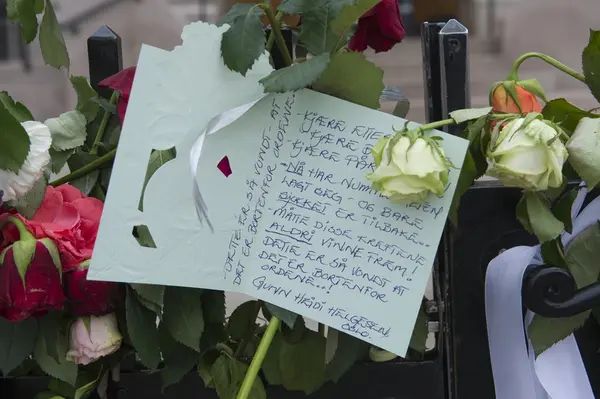 KJÆRE
KJÆRE
KJÆRE
- NÅ HAR
LAGT SEG - OG BARE
MØRKET ER TILBAKE..
- MÅTE DISSE KREFTENE
ALDRI VINNE FREM!
DETTE ER SÅ VONDT AT
DET ER BORTENFOR
ORDENE..!
GUNN HEIDI HELGESEN,
OSLO.
DETTE ER SÅ VONDT - AT
DET ER BORTENFOR ORDENE..